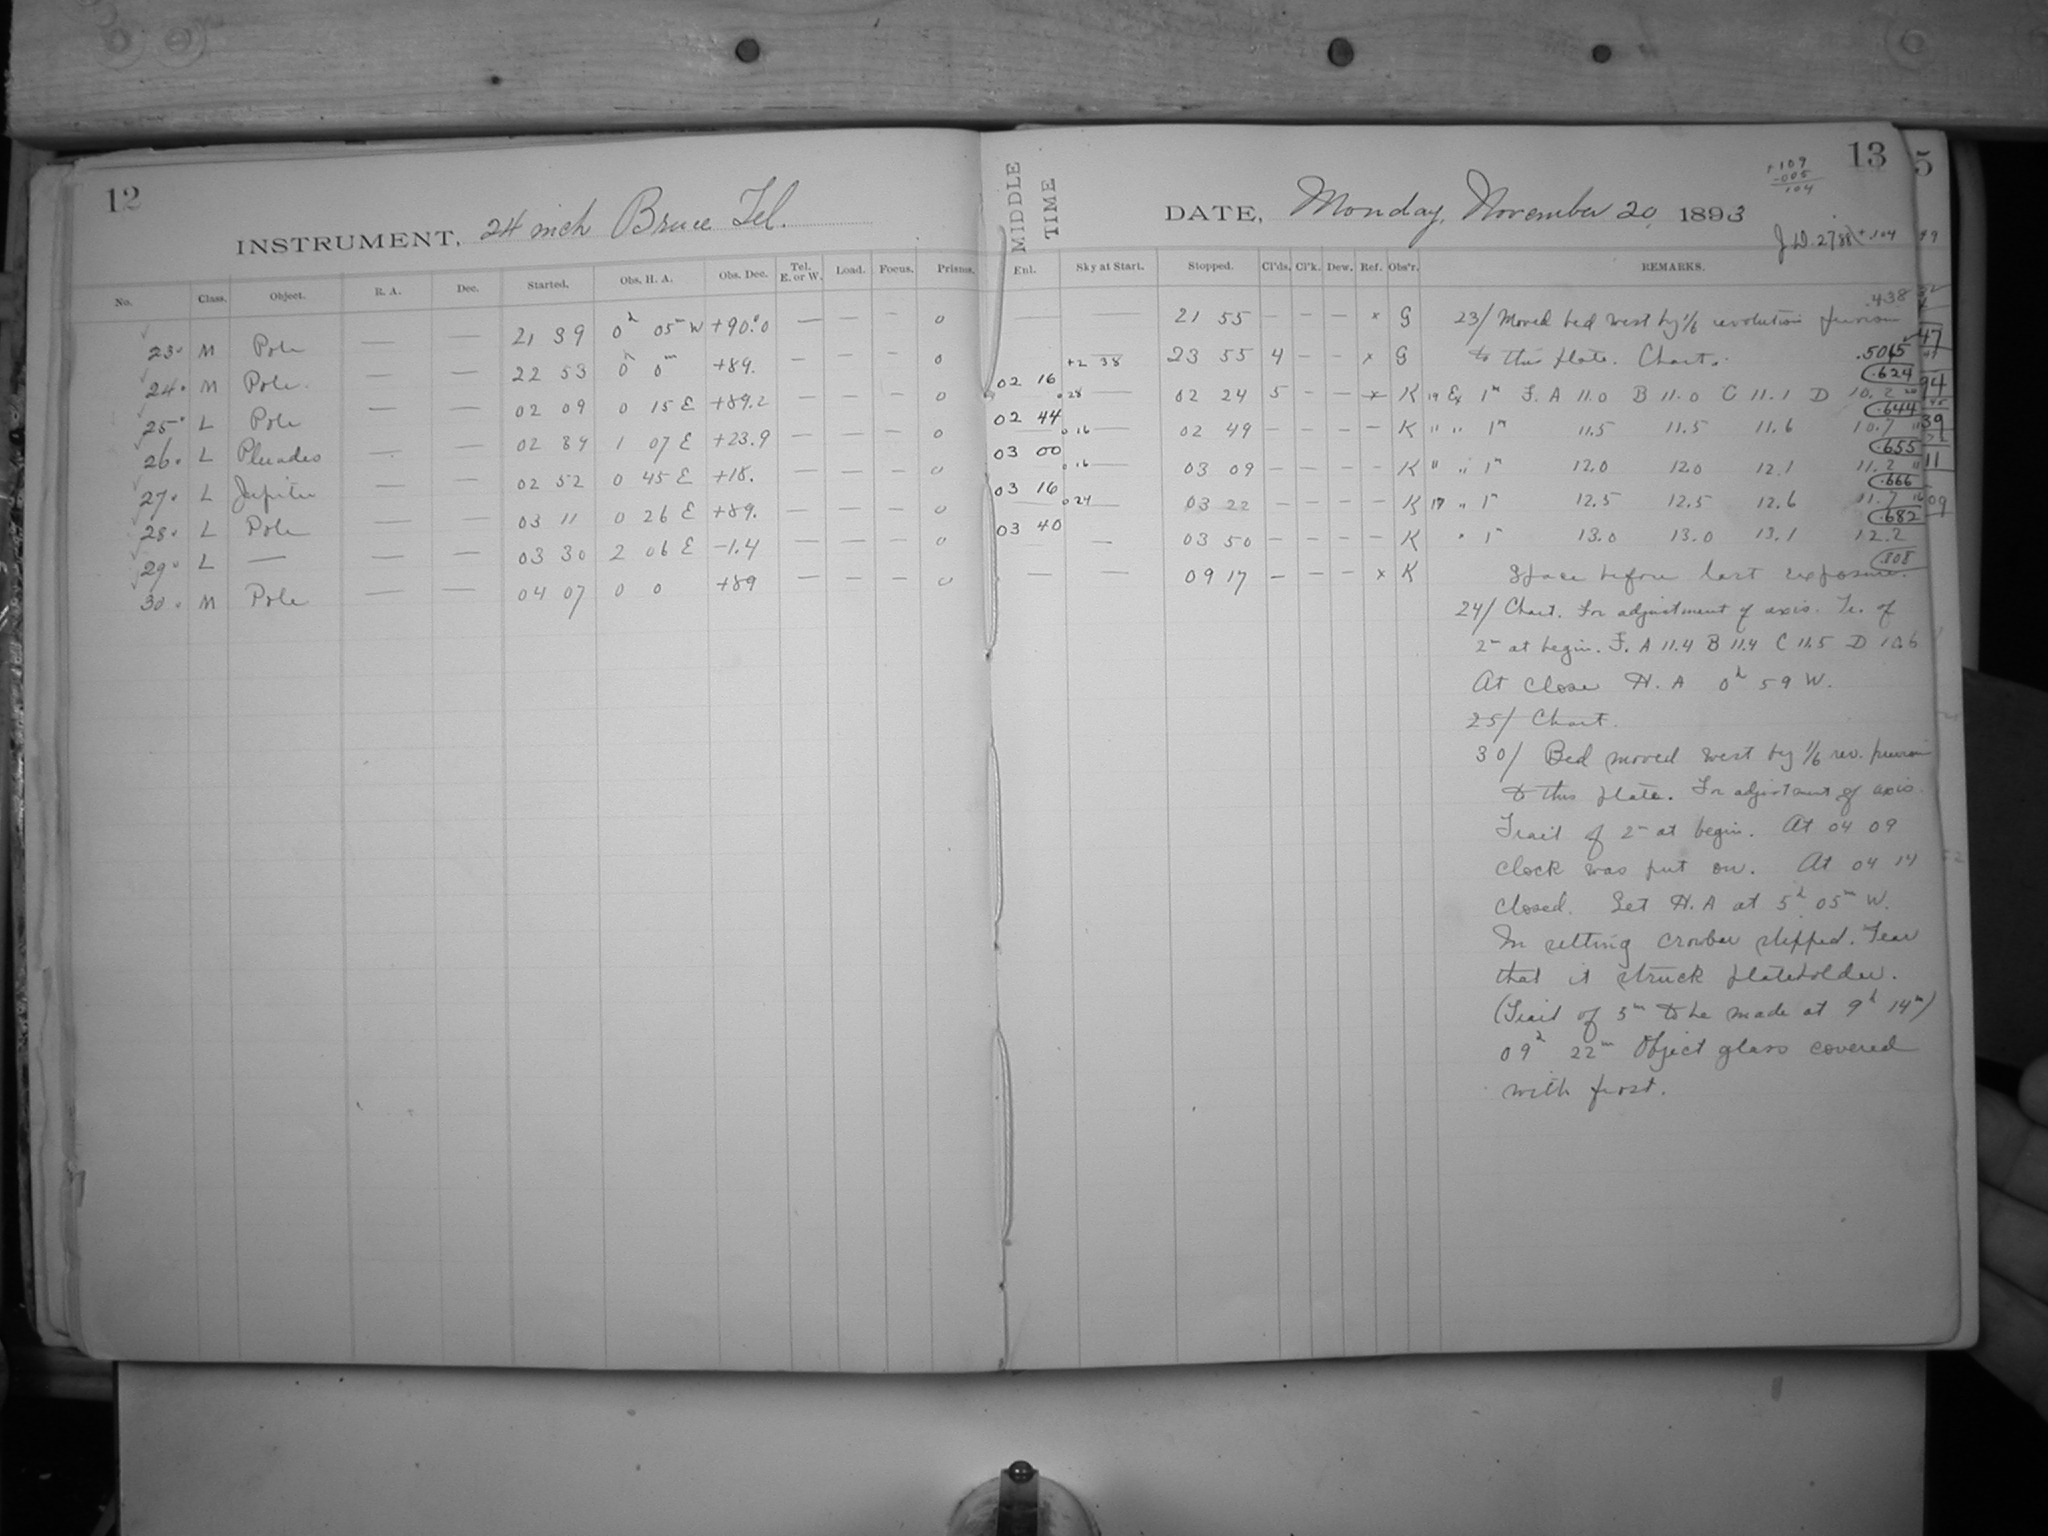 12
INSTRUMENT, 24 inch Bruce Tel.
No. Class. Object. R. A. Dec. Started. Obs. H. A. Obs. Dec. Tel. E. or W. Load. Focus. Prisms.
23. M Pole — — 21 39 0h 05m W +90.°0 — — — 0
24. M Pole. — — 22 53 0h 0m +89. — — — 0
25. L Pole — — 02 09 0 15 E +89.2 — — — 0
26. L Pleiades — — 02 39 1 07 E +23.9 — — — 0
27. L Jupiter — — 02 52 0 45 E +18. — — — 0
28. L Pole — — 03 11 0 26 E +89. — — — 0
29. L — — — 03 30 2 06 E -1.4 — — — 0
30. M Pole — — 04 07 0 0 +89 — — — 0
13
+109
-005
104
MIDDLE TIME
DATE, Monday, November 20, 1893
J.D. +.104
Enl. Sky at Start. Stopped. Cl'ds. Cl'k. Dew. Ref. Obs'r. REMARKS.
— — 21 55 — — — x G 23/ Moved bed west by 1/6 revolution previous .438
+2 38 23 55 4 — — x G to this plate. Chart. .5015
.624
02 16 0 28 — 02 24 5 — — x K 19 Ex 1m F. A 11.0 B 11.0 C 11.1 D 10.2
.644
02 44 0 16 — 02 49 — — — — K " " 1m 11.5 11.5 11.6 10.7
.655
03 00 0 16 — 03 09 — — — — K " " 1m 12.0 12.0 12.1 11.2
.666
03 16 0 24 — 03 22 — — — — K 17 " 1m 12.5 12.5 12.6 11.7
.682
03 40 — 03 50 — — — — K " 1m 13.0 13.0 13.1 12.2
.808
— — 09 17 — — — x K Space before last exposure.
24/ Chart. For adjustment of axis. Tr. of
2m at begin. F. A 11.4 B 11.4 C 11.5 D 10.6
At close H. A 0h 59 W.
25/ Chart.
30/ Bed moved west by 1/6 rev. previous
to this plate. For adjustment of axis.
Trail of 2m at begin. At 04 09
clock was put on. At 04 14
closed. Set H. A at 5h 05m W.
In setting crowbar slipped. Fear
that it struck plateholder.
(Trail of 5m to be made at 9h 14m)
09h 22m Object glass covered
with frost.